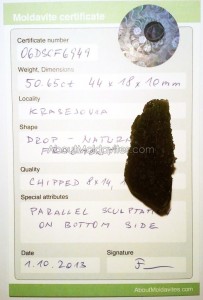 Moldavite certificate
Certificate number
06DSCF6949
Weight, Dimensions
50.65ct 44x18x10mm
Locality
Shape
DROP - NATURAL
Quality
CHIPPED 8x14,
Special attributes
PARALLEL SCULPTATION
ON BOTTOM SIDE
Date
Signature
1.10.2013
AboutMoldavites.com
AboutMoldavites.com